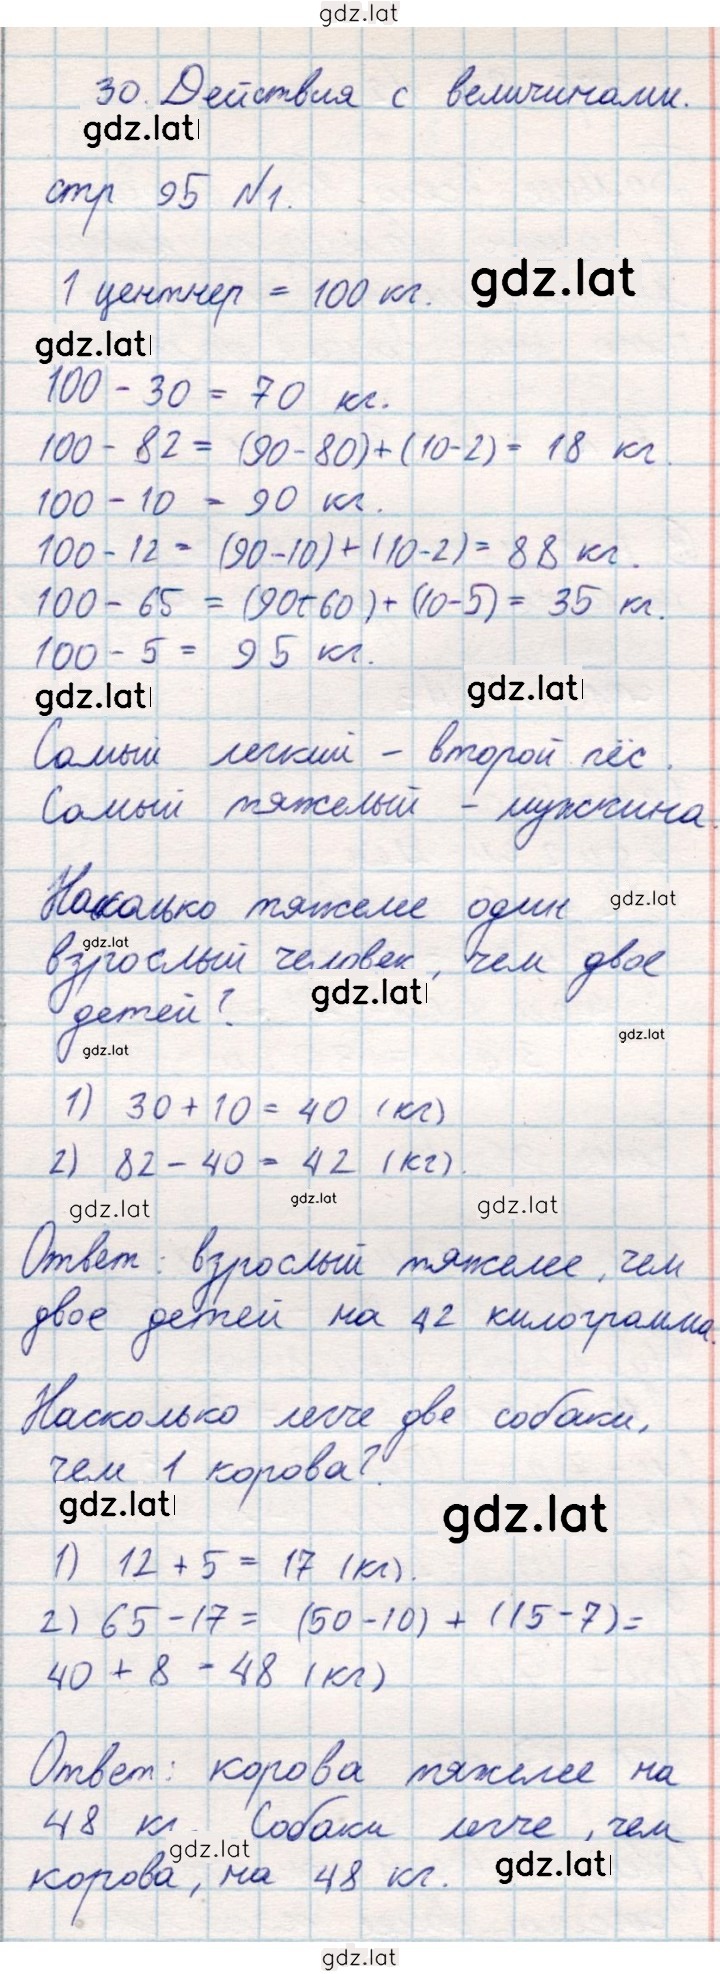 gdz.lat
30. Действия с величинами.
gdz.lat
стр 95 №1.
gdz.lat
1 центнер = 100 кг.
gdz.lat
100 - 30 = 70 кг.
100 - 82 = (90-80)+(10-2) = 18 кг.
100 - 10 = 90 кг.
100 - 12 = (90-10)+(10-2) = 88 кг.
100 - 65 = (90-60)+(10-5) = 35 кг.
100 - 5 = 95 кг.
gdz.lat
gdz.lat
Самый легкий - второй пёс.
Самый тяжелый - мужчина.
Насколько тяжелее один
gdz.lat
gdz.lat
взрослый человек, чем двое
gdz.lat
детей?
gdz.lat
gdz.lat
1) 30 + 10 = 40 (кг)
2) 82 - 40 = 42 (кг).
gdz.lat
gdz.lat
gdz.lat
Ответ: взрослый тяжелее, чем
двое детей на 42 килограмма.
Насколько легче две собаки,
чем 1 корова?
gdz.lat
gdz.lat
1) 12 + 5 = 17 (кг).
2) 65 - 17 = (50 - 10) + (15 - 7) =
40 + 8 = 48 (кг)
Ответ: корова тяжелее на
48 кг. Собаки легче, чем
gdz.lat
корова, на 48 кг.
gdz.lat
gdz.lat